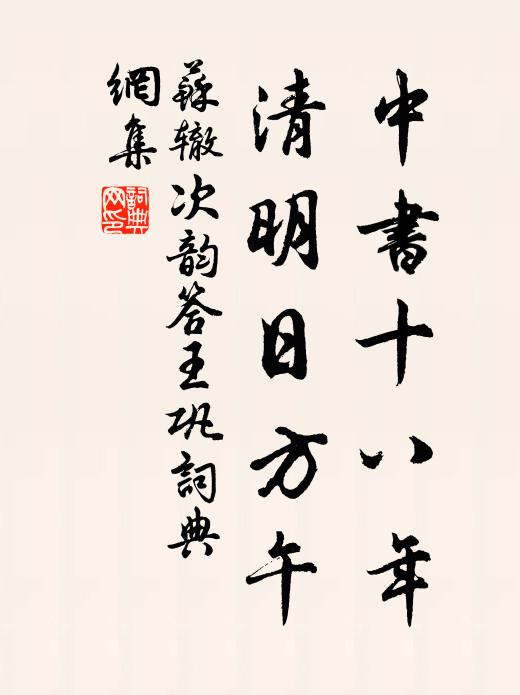 中書十八年
清明日方午
蘇辙次韵答王巩詞典
網集
詞典網印